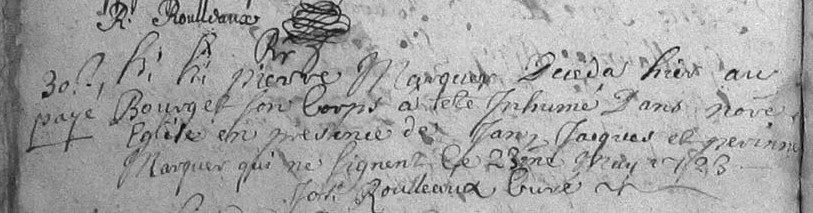 R. Roulleaux
30s, h. h. pierre Marquer Deceda hier au
payé Bourg et son Corps a eté Inhumé Dans notre
Eglise en presence de Jan, Jacques et perinne
Marquer qui ne signent ce 23me May 1723
Roulleaux Curé